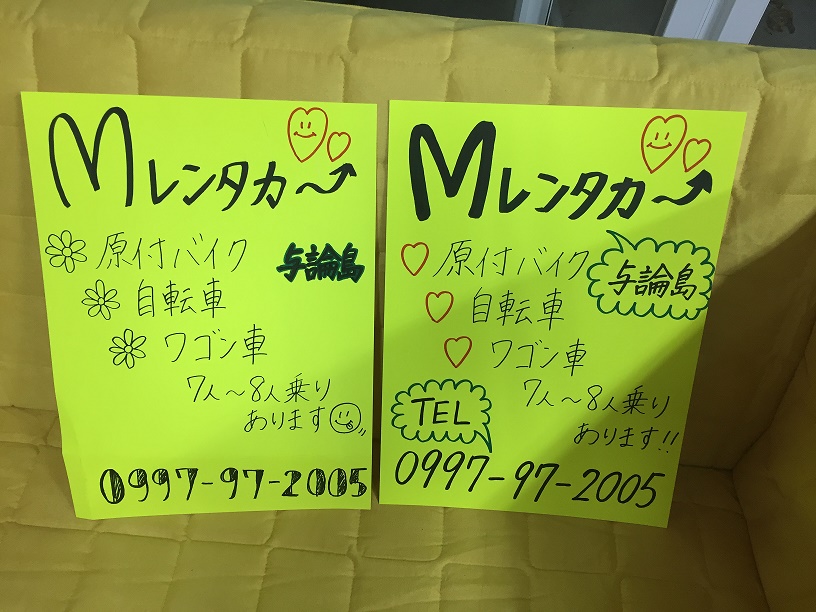 Mレンタカー
原付バイク
与論島
自転車
ワゴン車
7人～8人乗り
あります
0997-97-2005
Mレンタカー
原付バイク
与論島
自転車
ワゴン車
7人～8人乗り
あります!!
TEL
0997-97-2005